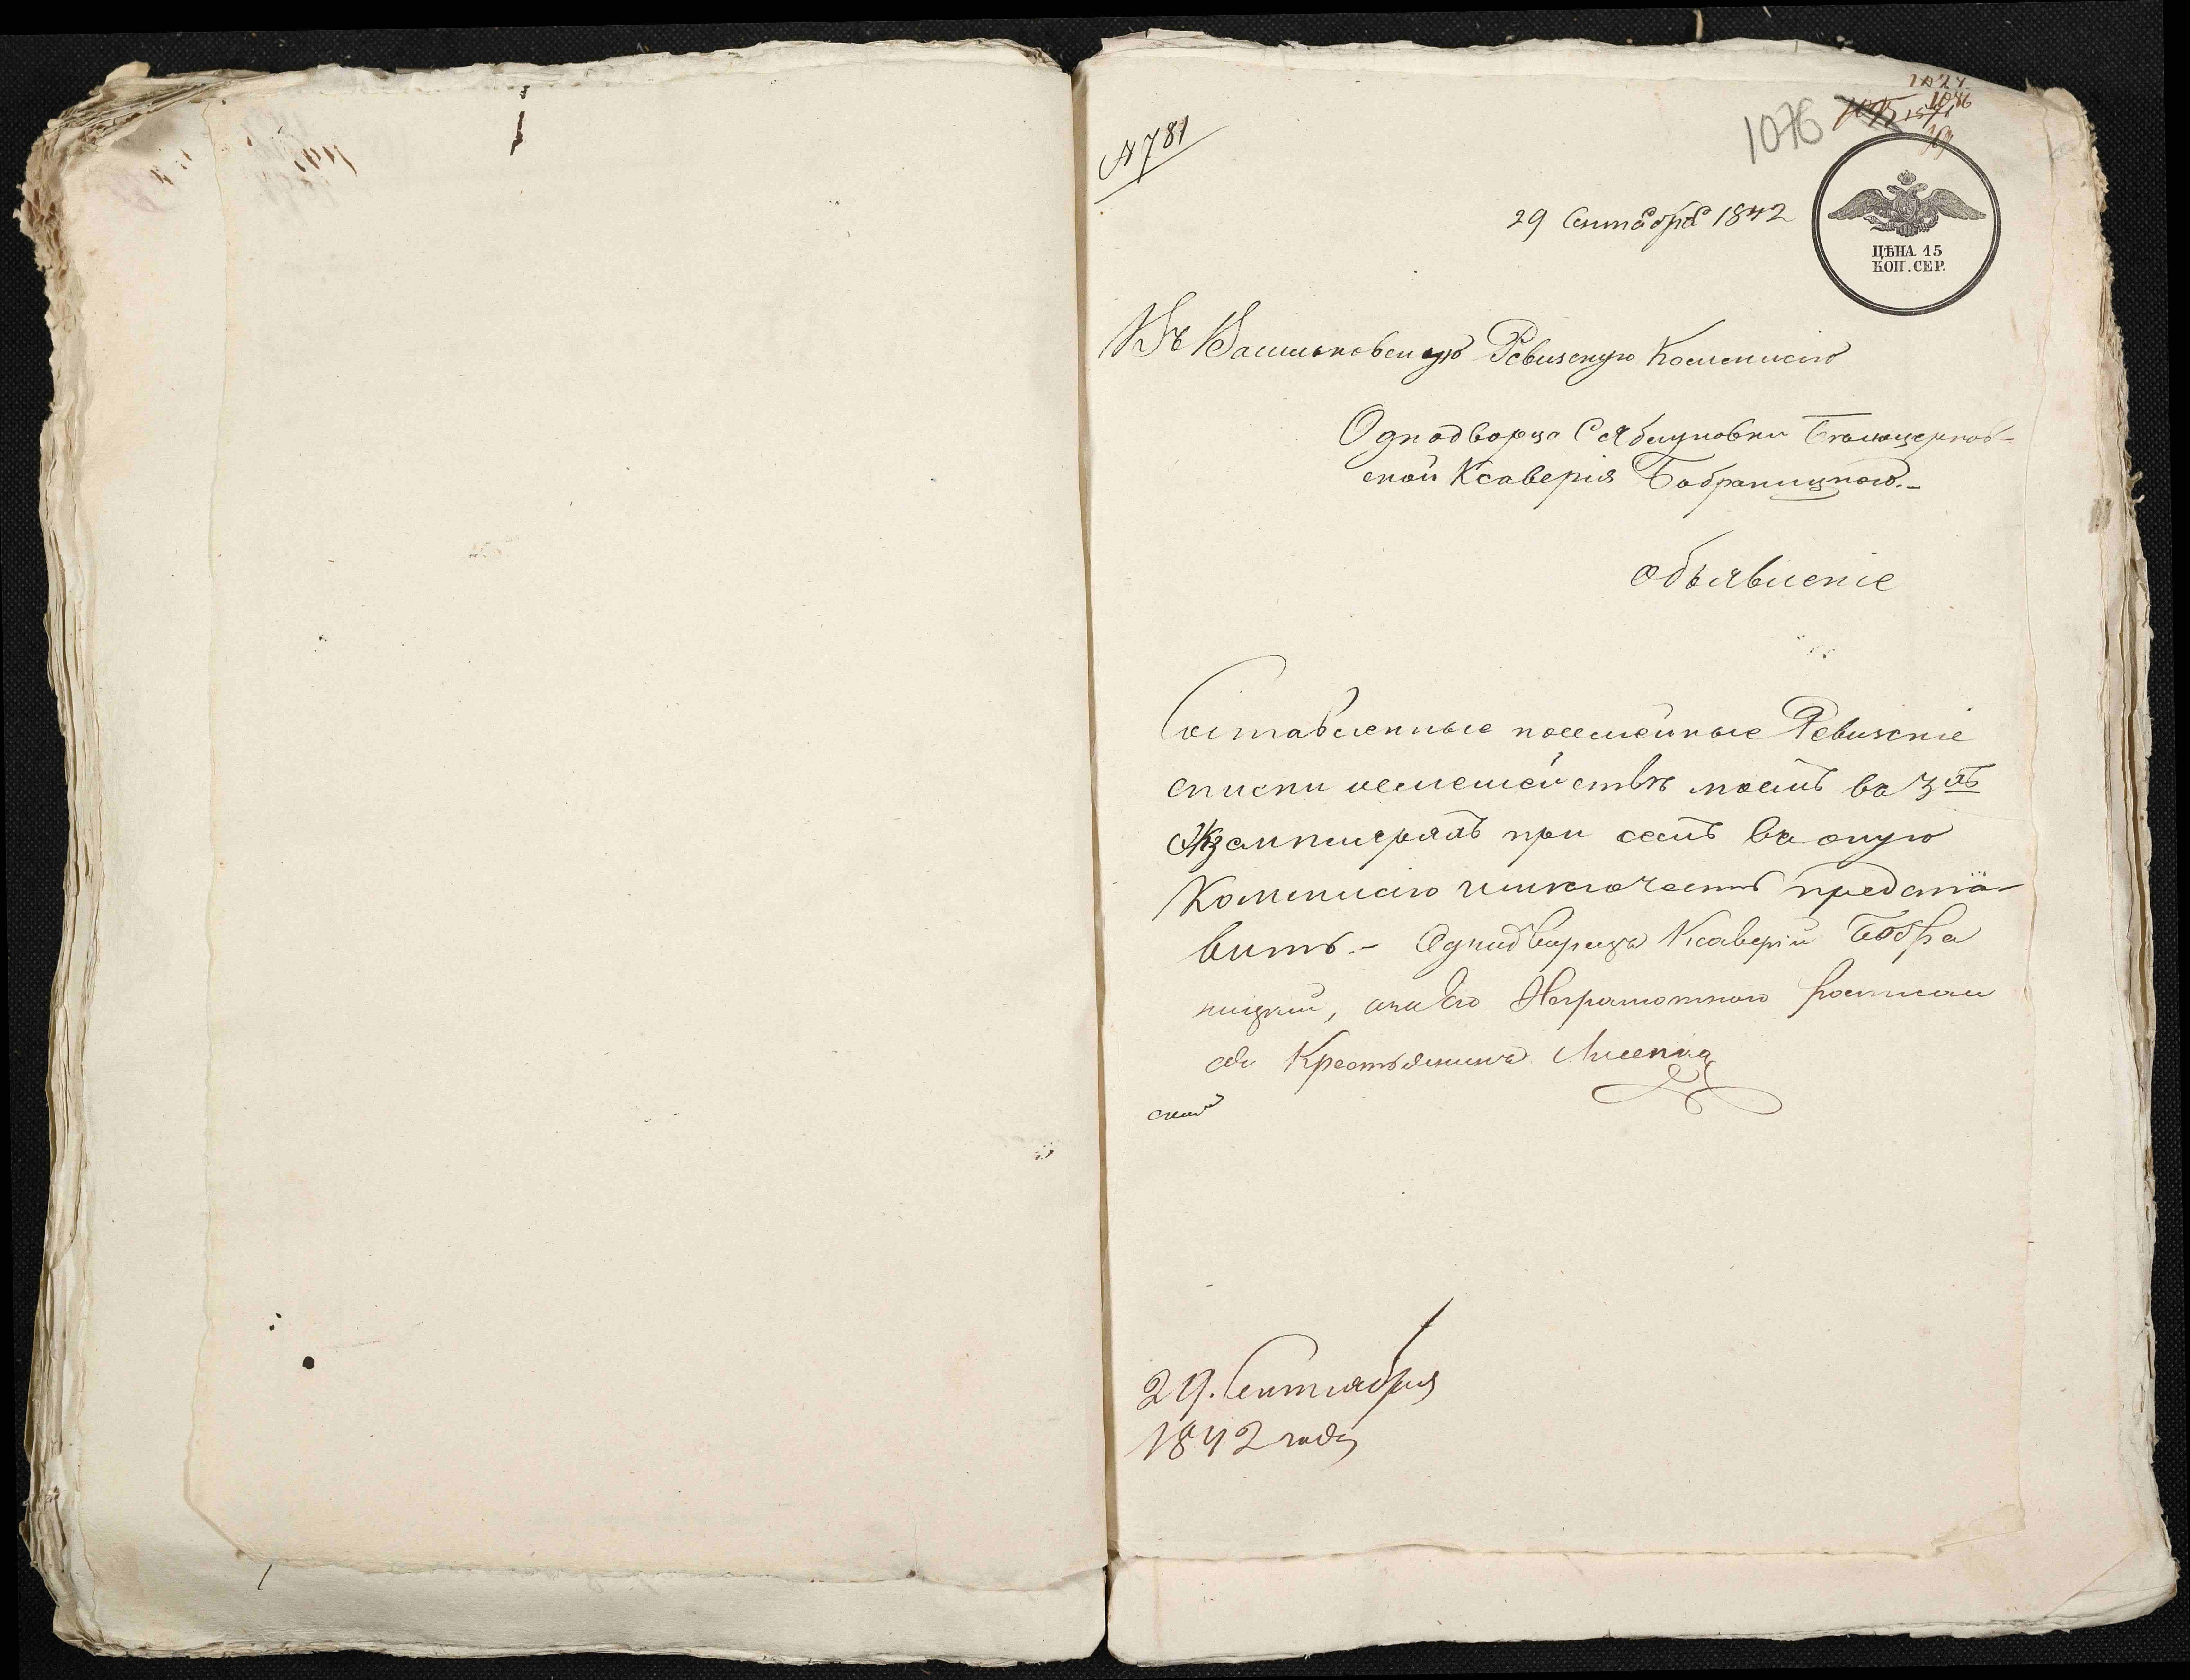 № 781
1076
29 Сентября 1842
ЦѢНА 15
КОП. СЕР.
Въ Васильковскую Ревизскую Коммисію
Однодворца С Яблуновки Бѣлоцерков-
ской Ксаверія Бобраницкого.-
Объявленіе
Составленные посемейные Ревизскіе
списки о семействѣ моемъ въ 3хъ
Экземплярахъ при семъ въ оную
Коммисію честь представ-
вить.- Однодворецъ Ксаверій Бобра
ницкій, а за его Неграмотного росписал
ся Крестьянинъ
29. Сентиабрия
1842 года